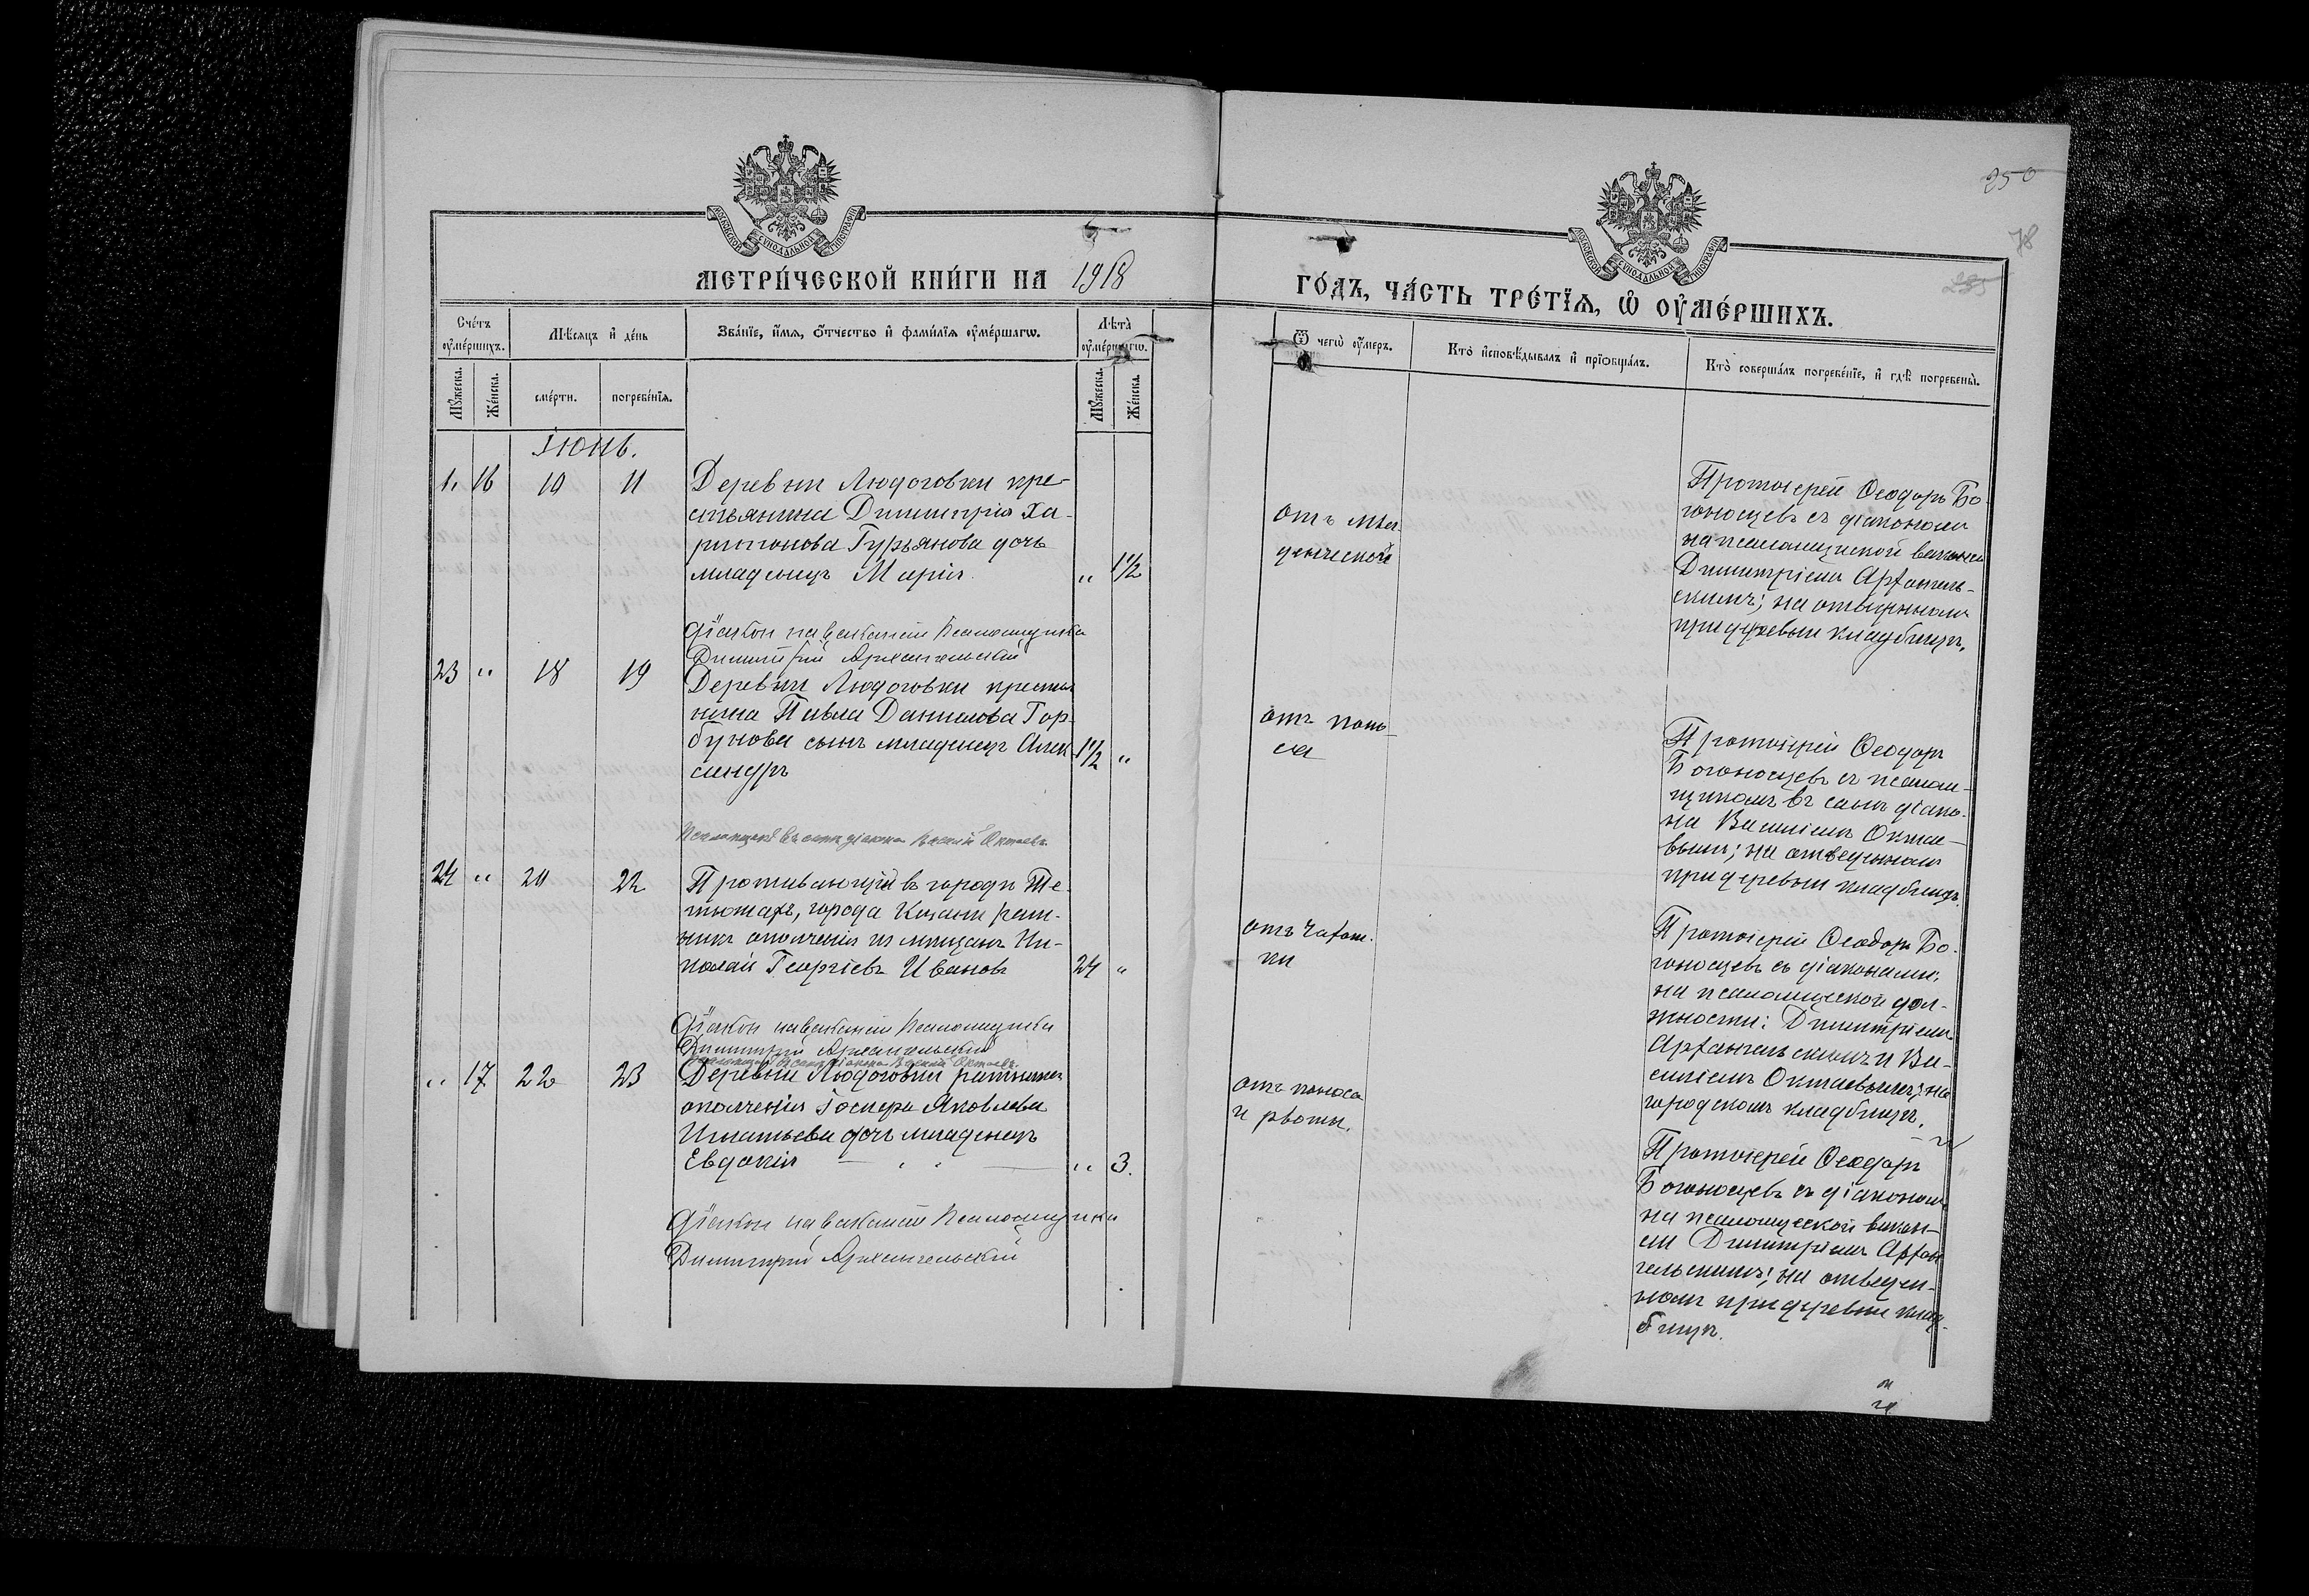 250
78
285
МОСКОВСКОЙ СѴНОДАЛЬНОЙ ТИПОГРАФІИ
МОСКОВСКОЙ СѴНОДАЛЬНОЙ ТИПОГРАФІИ
МЕТРИ́ЧЕСКОЙ КНИ́ГИ НА 1918
ГО́ДЪ, ЧА́СТЬ ТРЕ́ТЇѦ, Ѽ ОУ҆МЕ́РШИХЪ.
Сче́тъ оу҆ме́ршихъ.
Мѣ́сѧцъ и҆ де́нь
Зва́нїе, и҆́мѧ, ѻ҆́тчество и҆ фами́лїѧ оу҆ме́ршагѡ.
Лѣ́та оу҆ме́ршагѡ.
Ѿ чегѡ̀ оу҆́меръ.
Кто̀ и҆сповѣ́дывалъ и҆ прїѻбща́лъ.
Кто̀ соверша́лъ погребе́нїе, и҆ гдѣ̀ погребены̀.
Мꙋ́жеска.
Же́нска.
сме́рти.
погребе́нїѧ.
Мꙋ́жеска.
Же́нска.
Іюнь.
16 10 11 Деревни Людоговки кре-
стьянина Димитрія Ха-
ритонова Гурьянова дочь
младенецъ Марія. " 1½
отъ мла-
денческой
Протоіерей Ѳеодоръ Бо-
гоносцевъ съ діакономъ
на псаломщической вакансіи
Димитріемъ Архангель-
скимъ; на отведенномъ
при деревни кладбищѣ.
Діаконъ на вакансіи Псаломщика
Димитрій Архангельскій
23 " 18 19 Деревни Людоговки крестья
нина Павла Данилова Гор-
бунова сынъ младенецъ Алек
сандръ 1½ "
отъ поно-
са
Протоіерей Ѳеодоръ
Богоносцевъ съ псалом-
щикомъ въ санѣ діако-
на Василіемъ Октае-
вымъ; на отведенномъ
при деревни кладбищѣ.
Псаломщикъ въ санѣ діакона Василій Октаевъ
24 " 20 22 Проживающій въ городѣ Те-
тюшахъ, города Казани рат-
никъ ополченія изъ мѣщанъ Ни-
колай Георгіевъ Ивановъ 24 "
отъ чахот-
ки
Протоіерей Ѳеодоръ Бо-
гоносцевъ съ діаконами:
на псаломщической дол-
жности: Димитріемъ
Архангельскимъ и Ва-
силіемъ Октаевымъ; на
городскомъ кладбищѣ.
Діаконъ на вакансіи Псаломщика
Димитрій Архангельскій
Псаломщикъ въ санѣ діакона Василій Октаевъ
" 17 22 23 Деревни Людоговки ратника
ополченія Яковлева
Игнатьева дочь младенецъ
Евдокія " 3.
отъ поноса
и рвоты.
Протоіерей Ѳеодоръ
Богоносцевъ съ діакономъ
на псаломщической вакан-
сіи Димитріемъ Архан
гельскимъ; на отведен-
номъ при деревни клад-
бищѣ.
Діаконъ на вакансіи Псаломщика
Димитрій Архангельскій